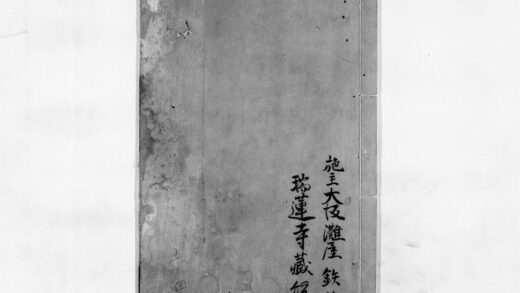 施主大阪灘屋鉄
瑞蓮寺藏